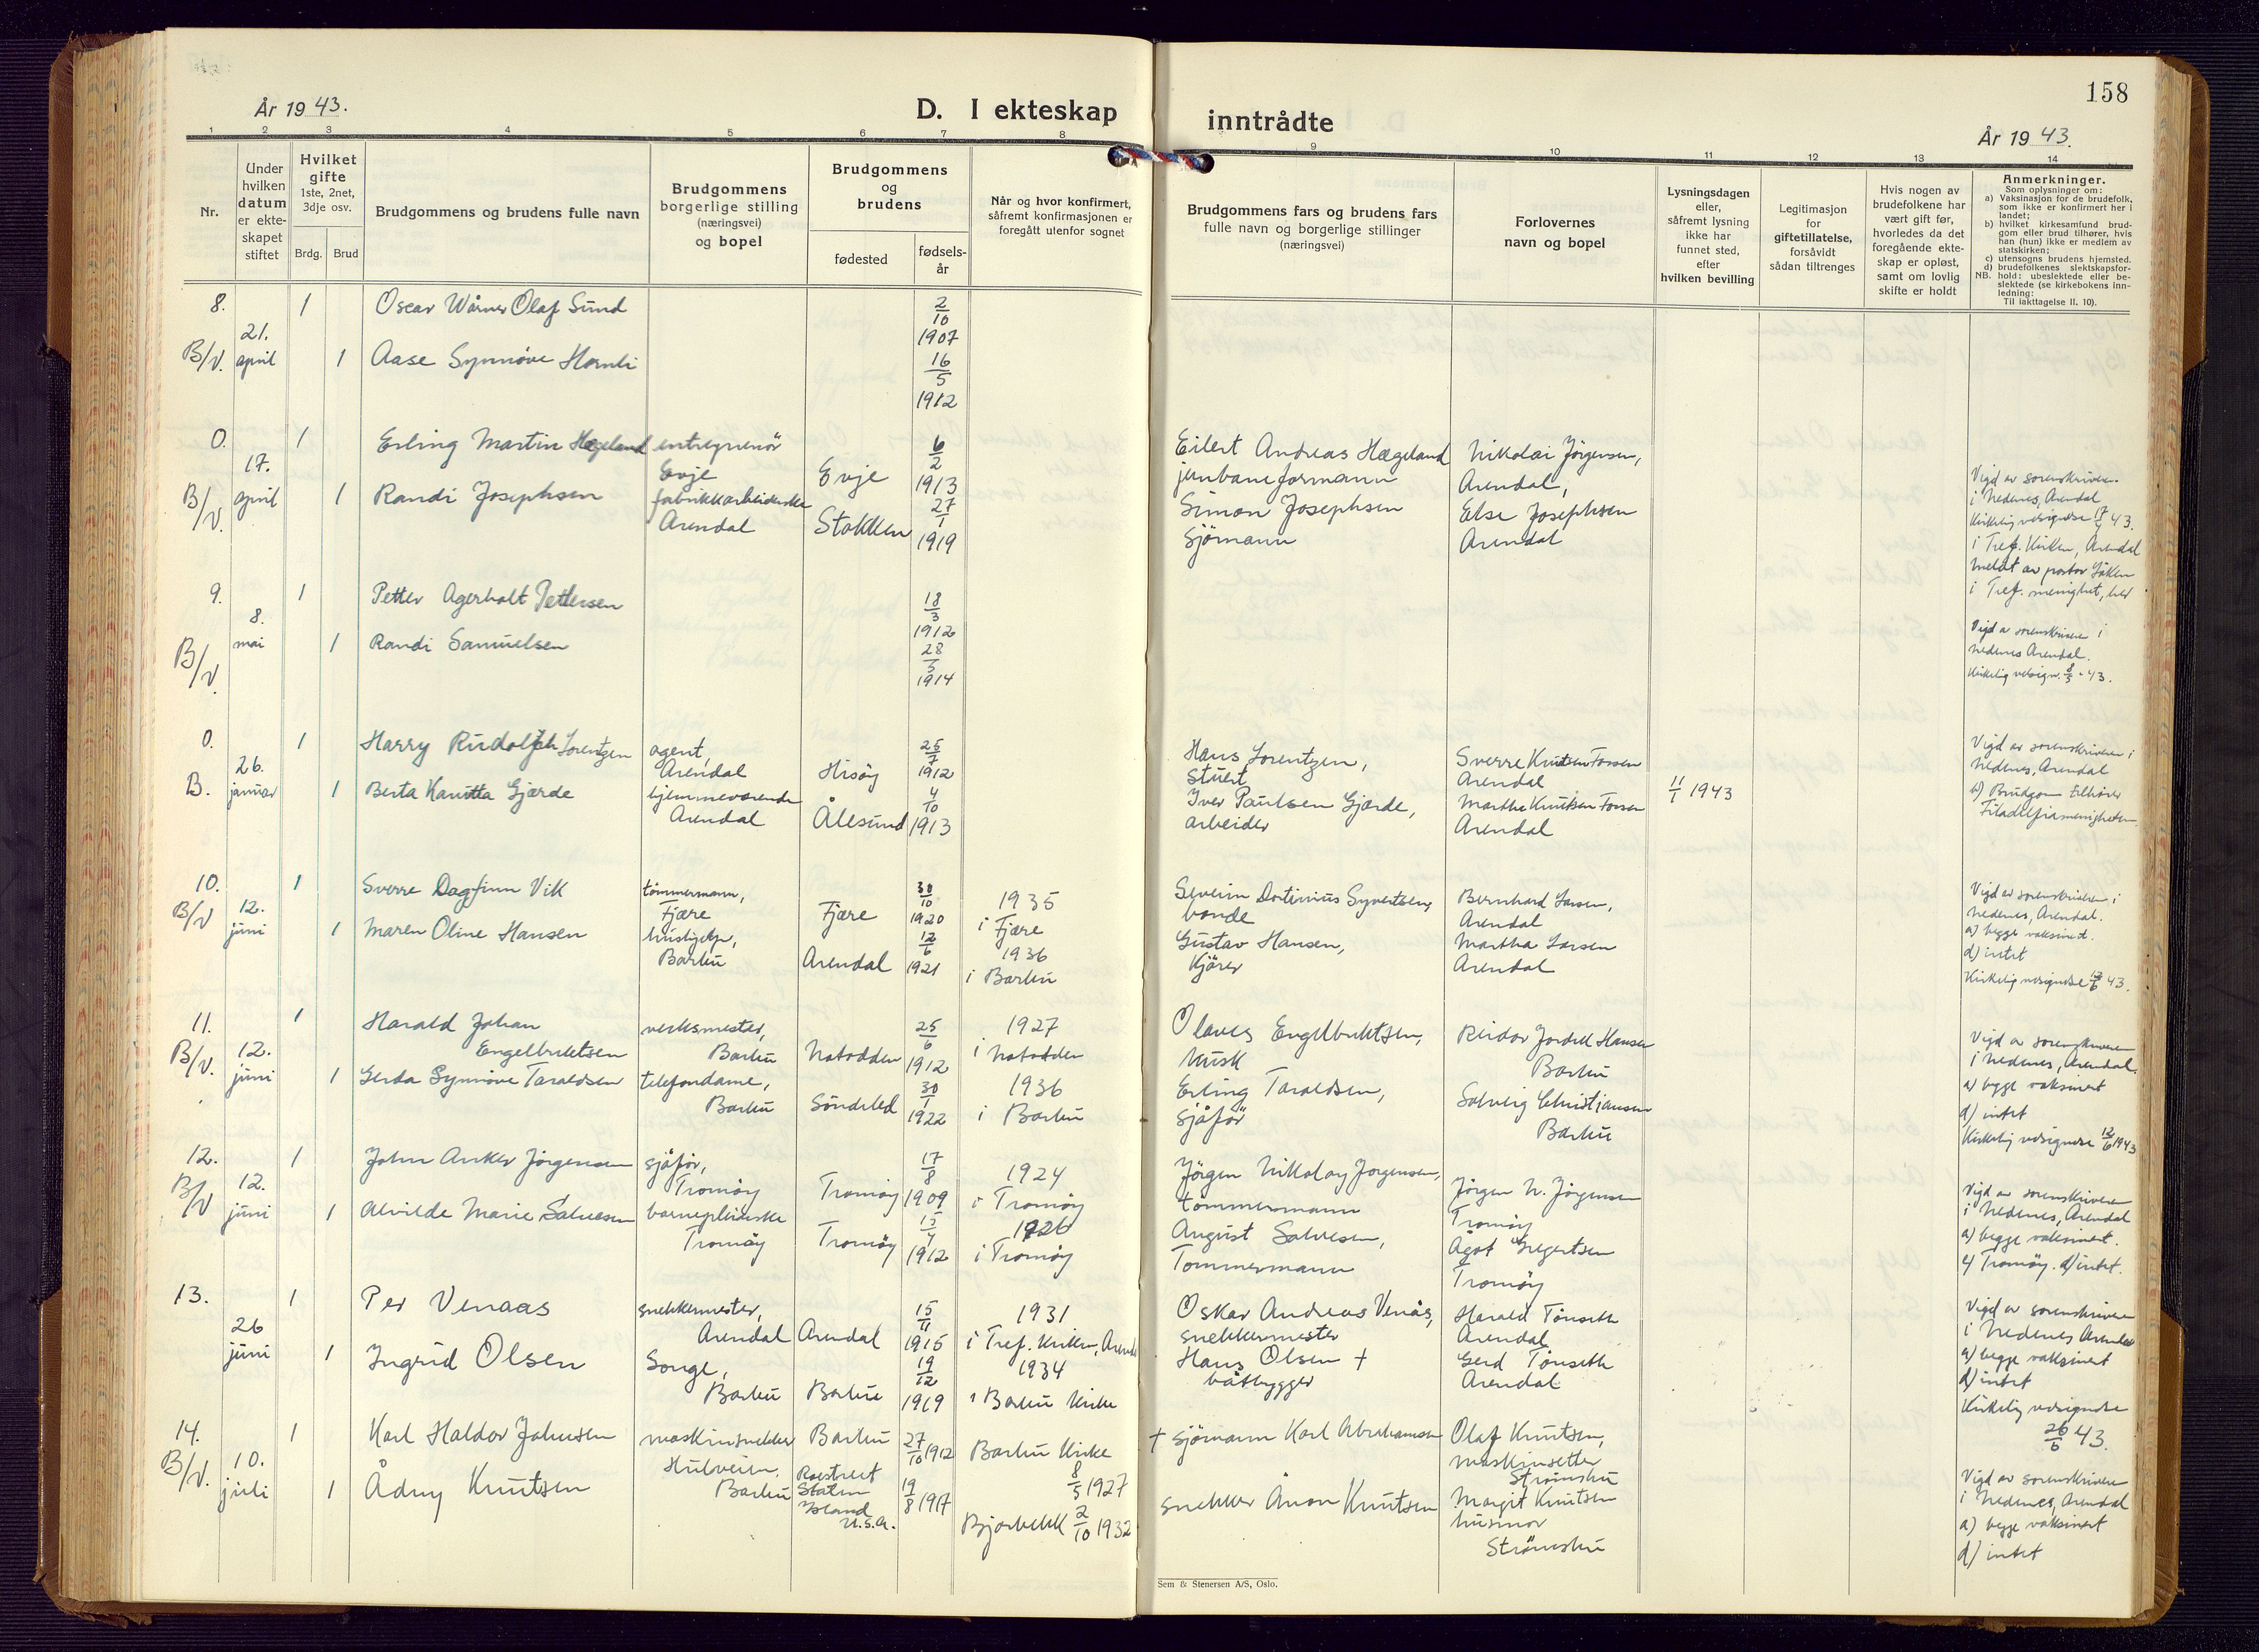 158
År 1943.
D. I ekteskap inntrådte
År 1943.
1 2 3 4 5 6 7 8 9 10 11 12 13 14
Nr.
Under
hvilken
datum
er ekte-
skapet
stiftet
Hvilket
gifte
1ste, 2net,
3dje osv.
Brdg. Brud
Brudgommens og brudens fulle navn
Brudgommens
borgerlige stilling
(næringsvei)
og bopel
Brudgommens
og
brudens
fødested
fødsels-
år
Når og hvor konfirmert,
såfremt konfirmasjonen er
foregått utenfor sognet
Brudgommens fars og brudens fars
fulle navn og borgerlige stillinger
(næringsvei)
Forlovernes
navn og bopel
Lysningsdagen
eller,
såfremt lysning
ikke har
funnet sted,
efter
hvilken bevilling
Legitimasjon
for
giftetillatelse,
forsåvidt
sådan tiltrenges
Hvis nogen av
brudefolkene har
vært gift før,
hvorledes da det
foregående ekte-
skap er opløst,
samt om lovlig
skifte er holdt
Anmerkninger.
Som oplysninger om:
a) Vaksinasjon for de brudefolk,
som ikke er konfirmert her i
landet;
b) hvilket kirkesamfund brud-
gom eller brud tilhører, hvis
han (hun) ikke er medlem av
statskirken;
c) utensogns brudens hjemsted.
d) brudefolkenes slektskapsfor-
NB. hold: ubeslektede eller be-
slektede (se kirkebokens inn-
ledning:
Til iakttagelse II. 10).
8. B/V. 21. april
1 Oscar Wårner Olaf Sund 2/10 1907
1 Aase Synnøve Hornli 16/5 1912
0. B/V. 17. april
1 Erling Martin Hægeland entreprenör Evje Evje 6/2 1913
1 Randi Josephsen fabrikkarbeiderske Arendal Stokken 27/1 1919
Eilert Andreas Hægeland
jernbaneformann
Simon Josephsen
Sjömann
Nikolai Jörgensen,
Arendal,
Else Josephsen
Arendal
Vigd av sorenskriveren
i Nedenes, Arendal
Kirkelig velsignelse 17/4 43.
i Tref. Kirken, Arendal
meldt av pastor
i Tref. menighet, her
9. B/V. 8. mai
1 Petter Agerholt Pettersen 18/3 1912
1 Randi Samuelsen 28/5 1914
Vigd av sorenskriveren i
Nedenes Arendal.
Kirkelig velsign. 8/5 - 43.
0. B. 26. januar
1 Harry Rudolph Lorentzen agent, Arendal Hisöy 25/7 1912
1 Berta Kanutta Gjærde hjemmeværende Arendal Ålesund 4/10 1913
Hans Lorentzen,
Stuert
Iver Paulsen Gjærde,
arbeider
Sverre Knutsen Fossen
Arendal
Marthe Knutsen Fossen
Arendal
11/1 1943
Vigd av sorenskriveren i
Nedenes, Arendal
b) Brudgom tilhører
Filadelfiamenigheten.
10. B/V 12. juni
1 Sverre Dagfinn Vik tömmermann, Fjære Fjære 30/10 1920 1935 i Fjære
1 Maren Oline Hansen hushjelp, Barbu Arendal 12/6 1921 1936 i Barbu
Severin Syvertsen,
bonde
Gustav Hansen,
Kjörer
Bernhard Larsen,
Arendal
Martha Larsen
Arendal
Vigd av sorenskriveren i
Nedenes, Arendal.
a) begge vaksinert.
d) intet
Kirkelig velsignelse 12/6 43.
11. B/V. 12. juni
1 Harald Johan
Engelbrektsen verksmester, Barbu Notodden 25/6 1912 1927 i Notodden
1 Gerda Synnöve Taraldsen telefondame, Barbu Söndeled 30/1 1922 1936 i Barbu
Olaves Engelbrektsen,
Erling Taraldsen,
Sjåför
Reidar Jordell Hansen
Barbu
Solveig Christiansen
Barbu
Vigd av sorenskriveren
i Nedenes, Arendal.
a) begge vaksinert
d) intet
Kirkelig velsignelse 12/6 1943
12. B/V 12. juni
1 John Anker Jörgensen sjåför, Tromöy Tromöy 17/8 1909 1924 i Tromöy
1 Alvilde Marie Salvesen barnepleierske Tromöy Tromöy 15/4 1912 1926 i Tromöy
Jörgen Nikolay Jorgensen,
tömmermann
August Salvesen,
Tömmermann
Jörgen N. Jörgensen
Tromöy
Ågot Gregertsen
Tromöy
Vigd av sorenskriveren
i Nedenes, Arendal
a) begge vaksinert.
c) Tromöy. d) intet.
13. 26 juni
1 Per Venaas snekkermester, Arendal Arendal 15/11 1915 1931 i Tref. Kirken, Arendal
1 Ingrid Olsen Songe, Barbu Barbu 19/12 1919 1934 i Barbu Kirke
Oskar Andreas Venås,
snekkermester
Hans Olsen +
båtbygger
Harald Tönseth
Arendal
Gerd Tönseth
Arendal
Vigd av sorenskriveren
i Nedenes Arendal
a) begge vaksinert
d) intet
Kirkelig velsignelse
26/6 43.
14. B/V. 10. juli
1 Karl Haldor Johnsen maskinsnekker Hulveien, Barbu Barbu 27/10 1912 Barbu Kirke 8/5 1927
1 Ådny Knutsen Staten Island U.S.A. 19/8 1917 Bjorbekk 2/10 1932
+ sjömann Karl Abrahamsen
snekker Knutsen
Olaf Knutsen,
maskinsetter
Strömsbu
Margit Knutsen
husmor
Strömsbu
Vigd av sorenskriveren
i Nedenes, Arendal
a) begge vaksinert
d) intet
Sem & Stenersen A/S, Oslo.